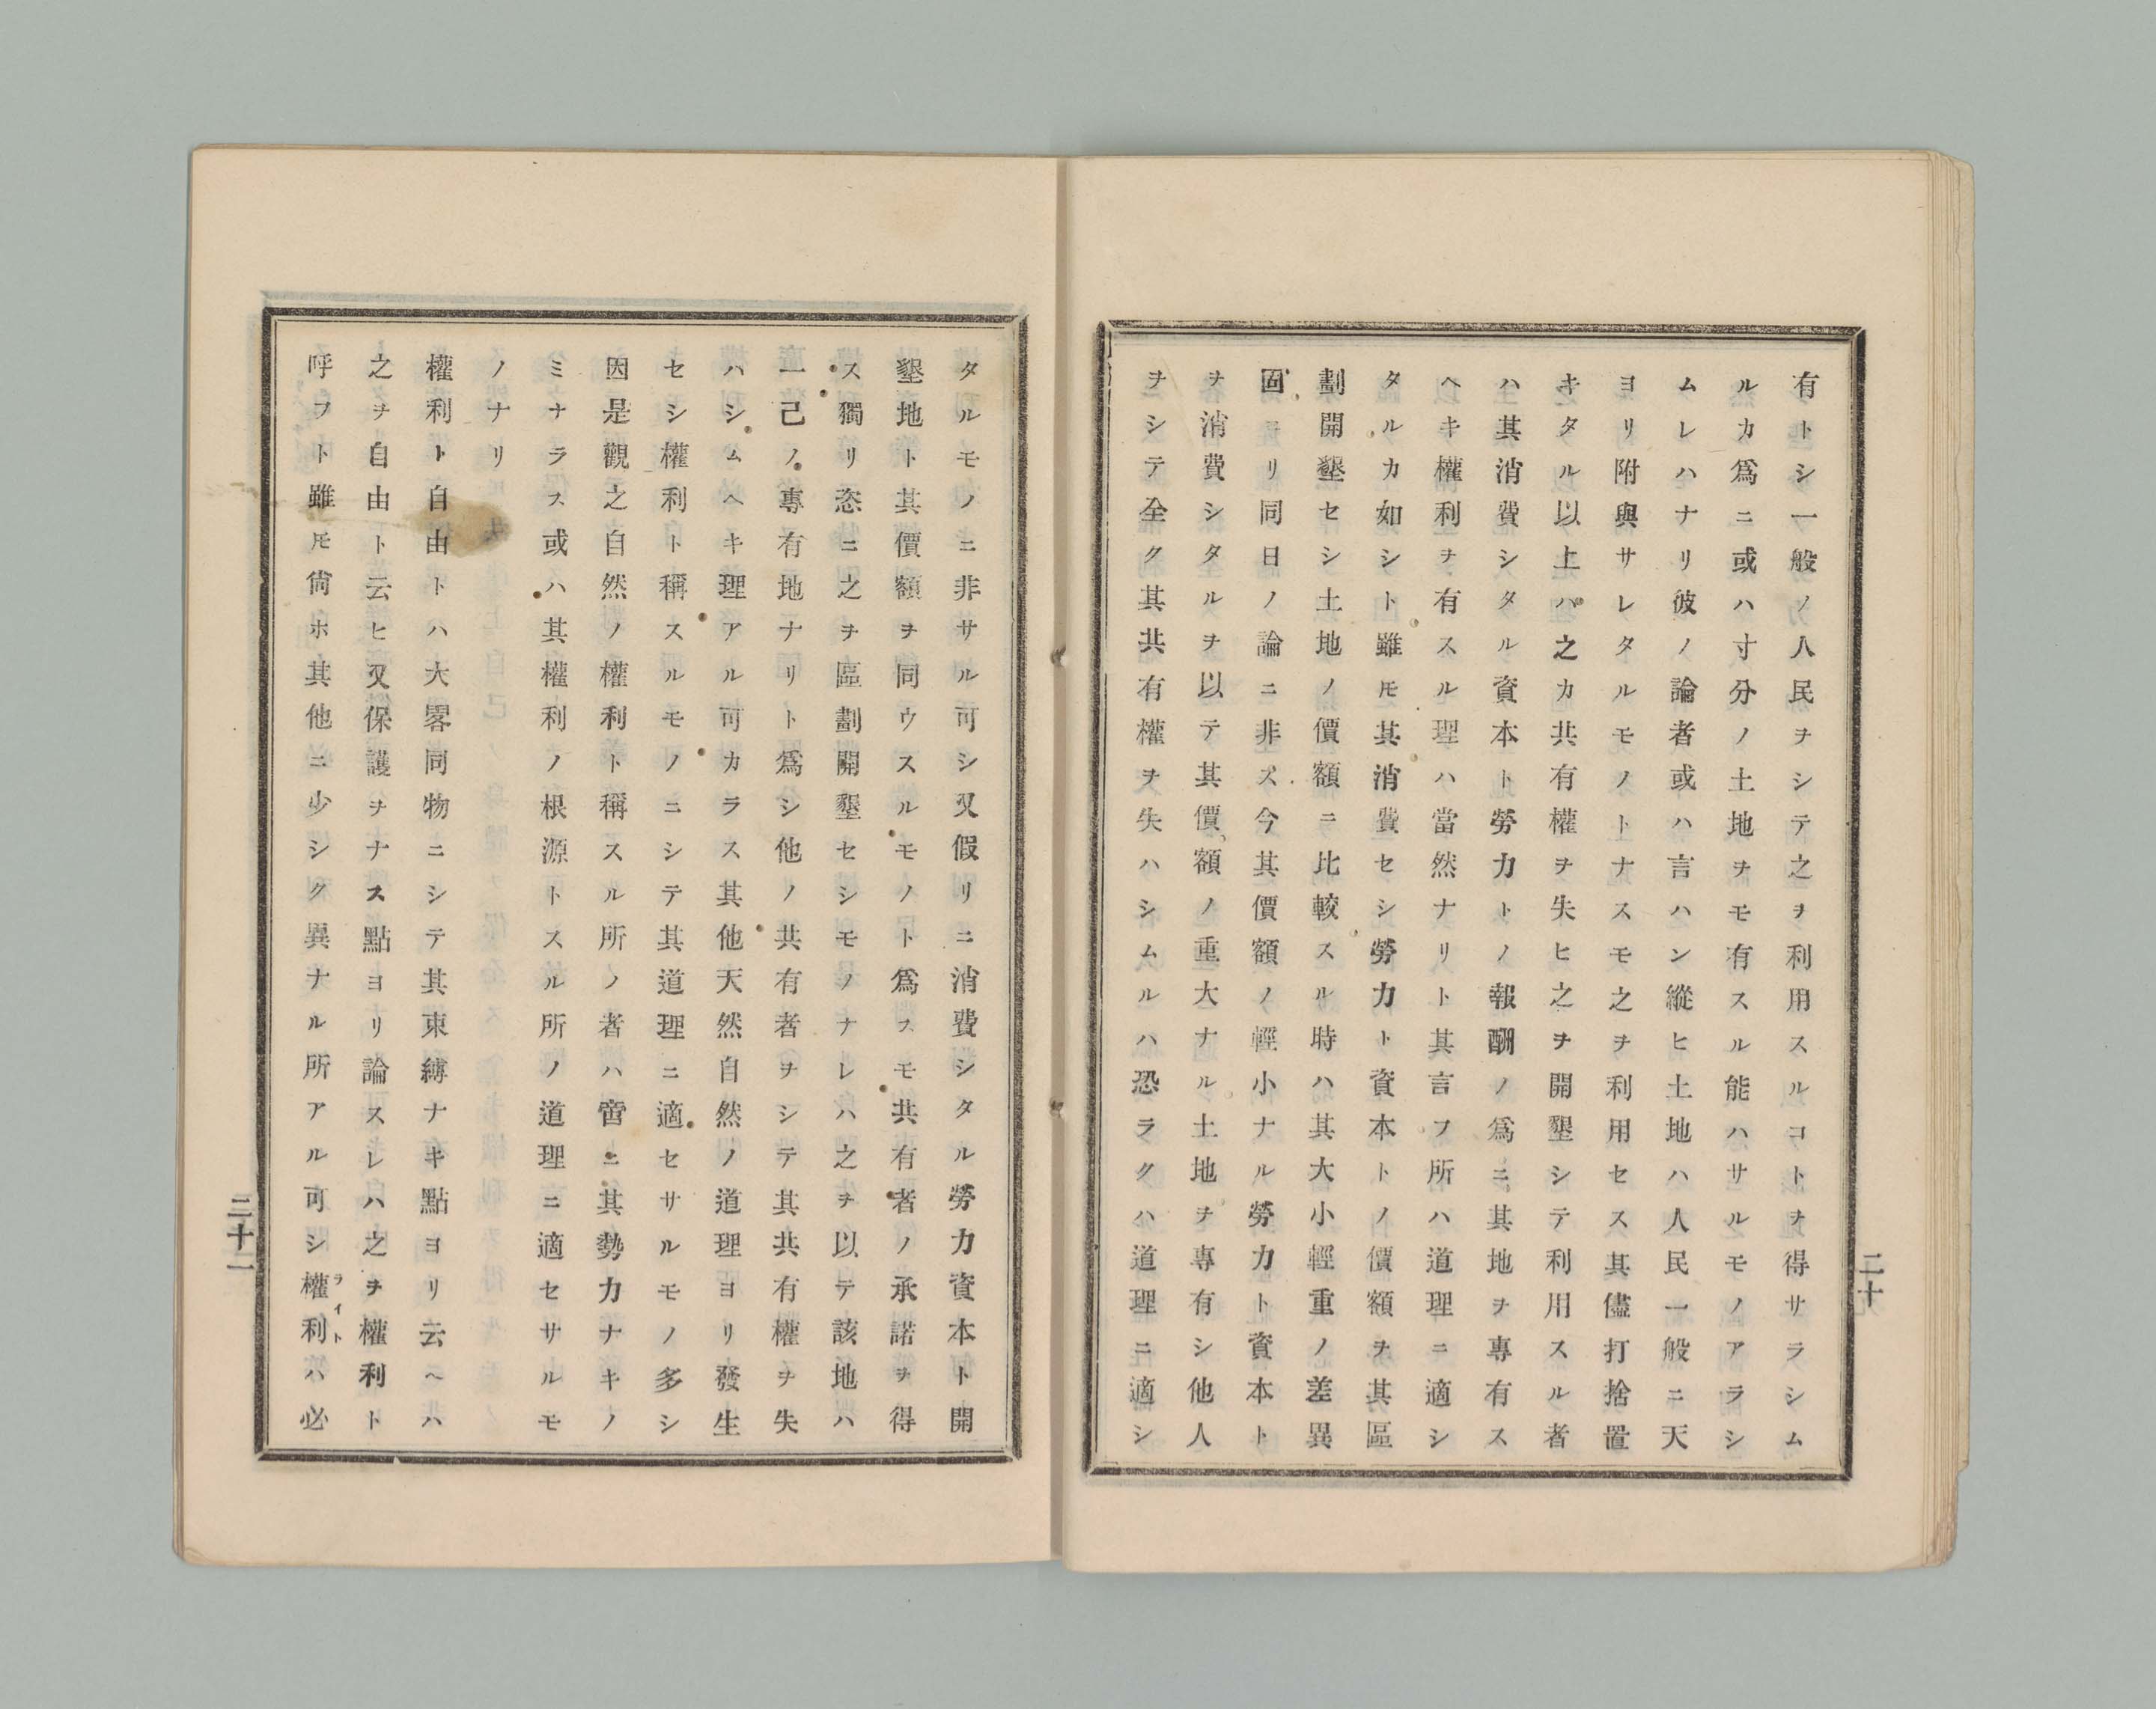 有トシ一般ノ人民ヲシテ之ヲ利用スルコトヲ得サラシム
ルカ爲ニ或ハ寸分ノ土地ヲモ有スル能ハサルモノアラシ
ムレハナリ彼ノ論者或ハ言ハン縱ヒ土地ハ人民一般ニ天
ヨリ附與サレタルモノトナスモ之ヲ利用セス其儘打捨置
キタル以上ハ之カ共有權ヲ失ヒ之ヲ開墾シテ利用スル者
ハ其消費シタル資本ト勞力トノ報酬ノ爲ニ其地ヲ專有ス
ヘキ權利ヲ有スル理ハ當然ナリト其言フ所ハ道理ニ適シ
タルカ如シト雖モ其消費セシ勞力ト資本トノ價額ヲ其區
劃開墾セシ土地ノ價額ニ比較スル時ハ其大小輕重ノ差異
固ヨリ同日ノ論ニ非ス今其價額ノ輕小ナル勞力ト資本ト
ヲ消費シタルヲ以テ其價額ノ重大ナル土地ヲ專有シ他人
ヲシテ全ク其共有權ヲ失ハシムルハ恐ラクハ道理ニ適シ
二十
タルモノニ非サル可シ又假リニ消費シタル勞力資本ト開
墾地ト其價額ヲ同ウスルモノト爲スモ共有者ノ承諾ヲ得
ス獨リ恣ニ之ヲ區劃開墾セシモノナレハ之ヲ以テ該地ハ
一己ノ專有地ナリト爲シ他ノ共有者ヲシテ其共有權ヲ失
ハシムヘキ理アル可カラス其他天然自然ノ道理ヨリ發生
セシ權利ト稱スルモノニシテ其道理ニ適セサルモノ多シ
因是觀之自然ノ權利ト稱スル所ノ者ハ啻ニ其勢力ナキノ
ミナラス或ハ其權利ノ根源トスル所ノ道理ニ適セサルモ
ノナリ
權利ト自由トハ大畧同物ニシテ其束縛ナキ點ヨリ云ヘハ
之ヲ自由ト云ヒ又保護ヲナス點ヨリ論スレハ之ヲ權利ト
呼フト雖モ尙ホ其他ニ少シク異ナル所アル可シ權利ハ必
ライト
二十一